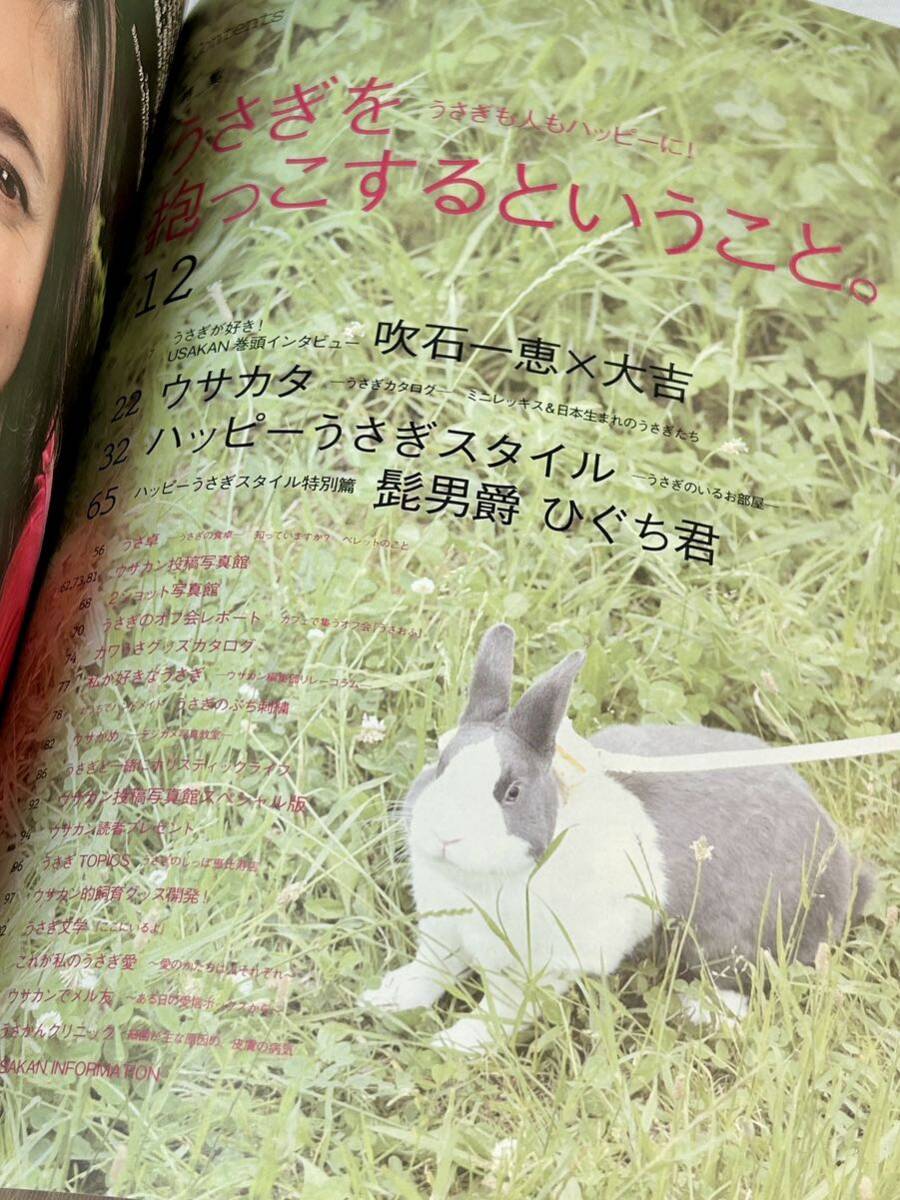 Contents
うさぎを
うさぎも人もハッピーに!
抱っこするということ。
12
うさぎが好き!
USAKAN 巻頭インタビュー 吹石一恵×大吉
22 ウサカタ ―うさぎカタログ― ミニレッキス&日本生まれのうさぎたち
32 ハッピーうさぎスタイル ―うさぎのいるお部屋―
65 ハッピーうさぎスタイル特別篇 髭男爵 ひぐち君
56 うさ卓 ―うさぎの食卓― 知っていますか? ペレットのこと
62,73,81 ウサカン投稿写真館
68 2ショット写真館
70 うさぎのオフ会レポート カフェで集うオフ会「うさおふ」
74 カワうさグッズカタログ
77 私が好きなうさぎ ―ウサカン編集部リレーコラム―
78 うさぎのぷち刺繍
82 ウサかめ ―デジカメ写真教室―
86 うさぎと一緒にホリスティックライフ
92 ウサカン投稿写真館スペシャル版
94 ウサカン読者プレゼント
96 うさぎ TOPICS うさぎのしっぽ恵比寿店
97 ウサカン的飼育グッズ開発!
うさぎ文学 「ここにいるよ」
これが私のうさぎ愛 ~愛のかたちは人それぞれ~
ウサカンでメル友 ~ある日の受信ボックスから~
うさかんクリニック 細菌が主な原因め 皮膚の病気
SAKAN INFORMATION